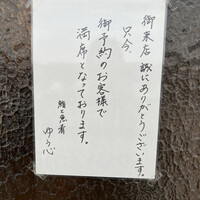 御来店 誠にありがとうございます。
只今
御予約のお客様で
満席となっております。
鮨と魚肴
ゆう心